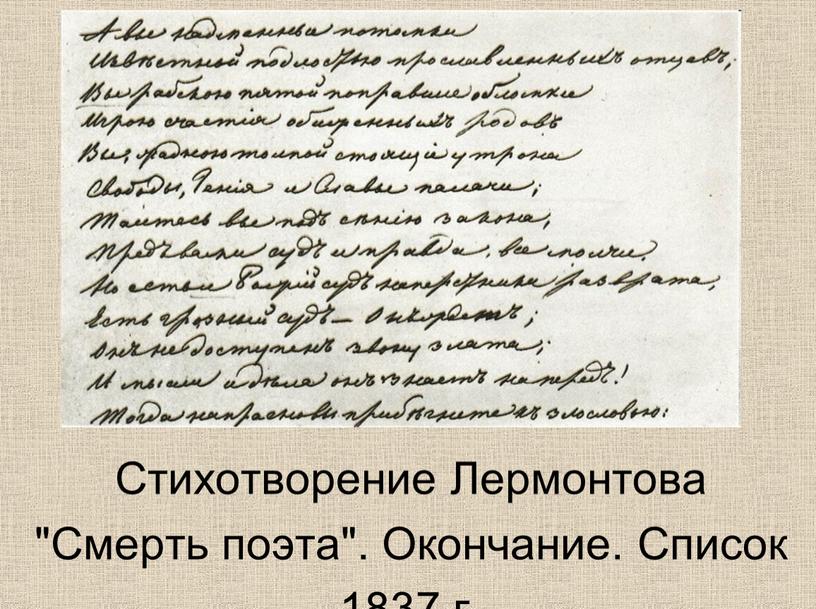 А вы надменные потомки
Извѣстной подлостью прославленныхъ отцевъ,
Вы рабскою пятой поправшие обломки
Игрою счастія обиженныхъ родовъ
Вы, жадною толпой стоящіе у трона
Свободы, Генія и Славы палачи;
Таитесь вы подъ сѣнію закона,
Предъ вами судъ и правда, все молчи,
Но есть и Божій судъ наперстники разврата,
Есть грозный судъ —
Онъ не доступенъ звону злата;
И мысли и дѣла онъ знаетъ напередъ!
Тогда напрасно вы прибѣгнете къ злословью:
Стихотворение Лермонтова
"Смерть поэта". Окончание. Список
1837 г.